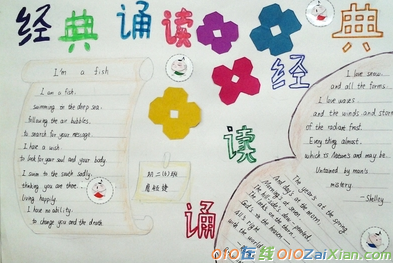 经典诵读
经典
诵读
I'm a fish
I am a fish.
swimming in the deep sea.
following the air bubbles.
to search for your message.
I have a wish
to look for your soul and your body.
I swim to the south sadly.
thinking you are there.
living happily.
I have no ability.
to change you and the death
I love snow.
and all the forms
I love waves
and the winds and storms
of the radiant frost.
Every thing almost.
which is Nature's and may be.
Untainted by man's
misery.
—Shelley
The year's at the spring
And day's at the morn
Morning's at seven
The hill-side's dew-pearled
God's in his heaven
All's right
with the world
010在线 010ZaiXian.com